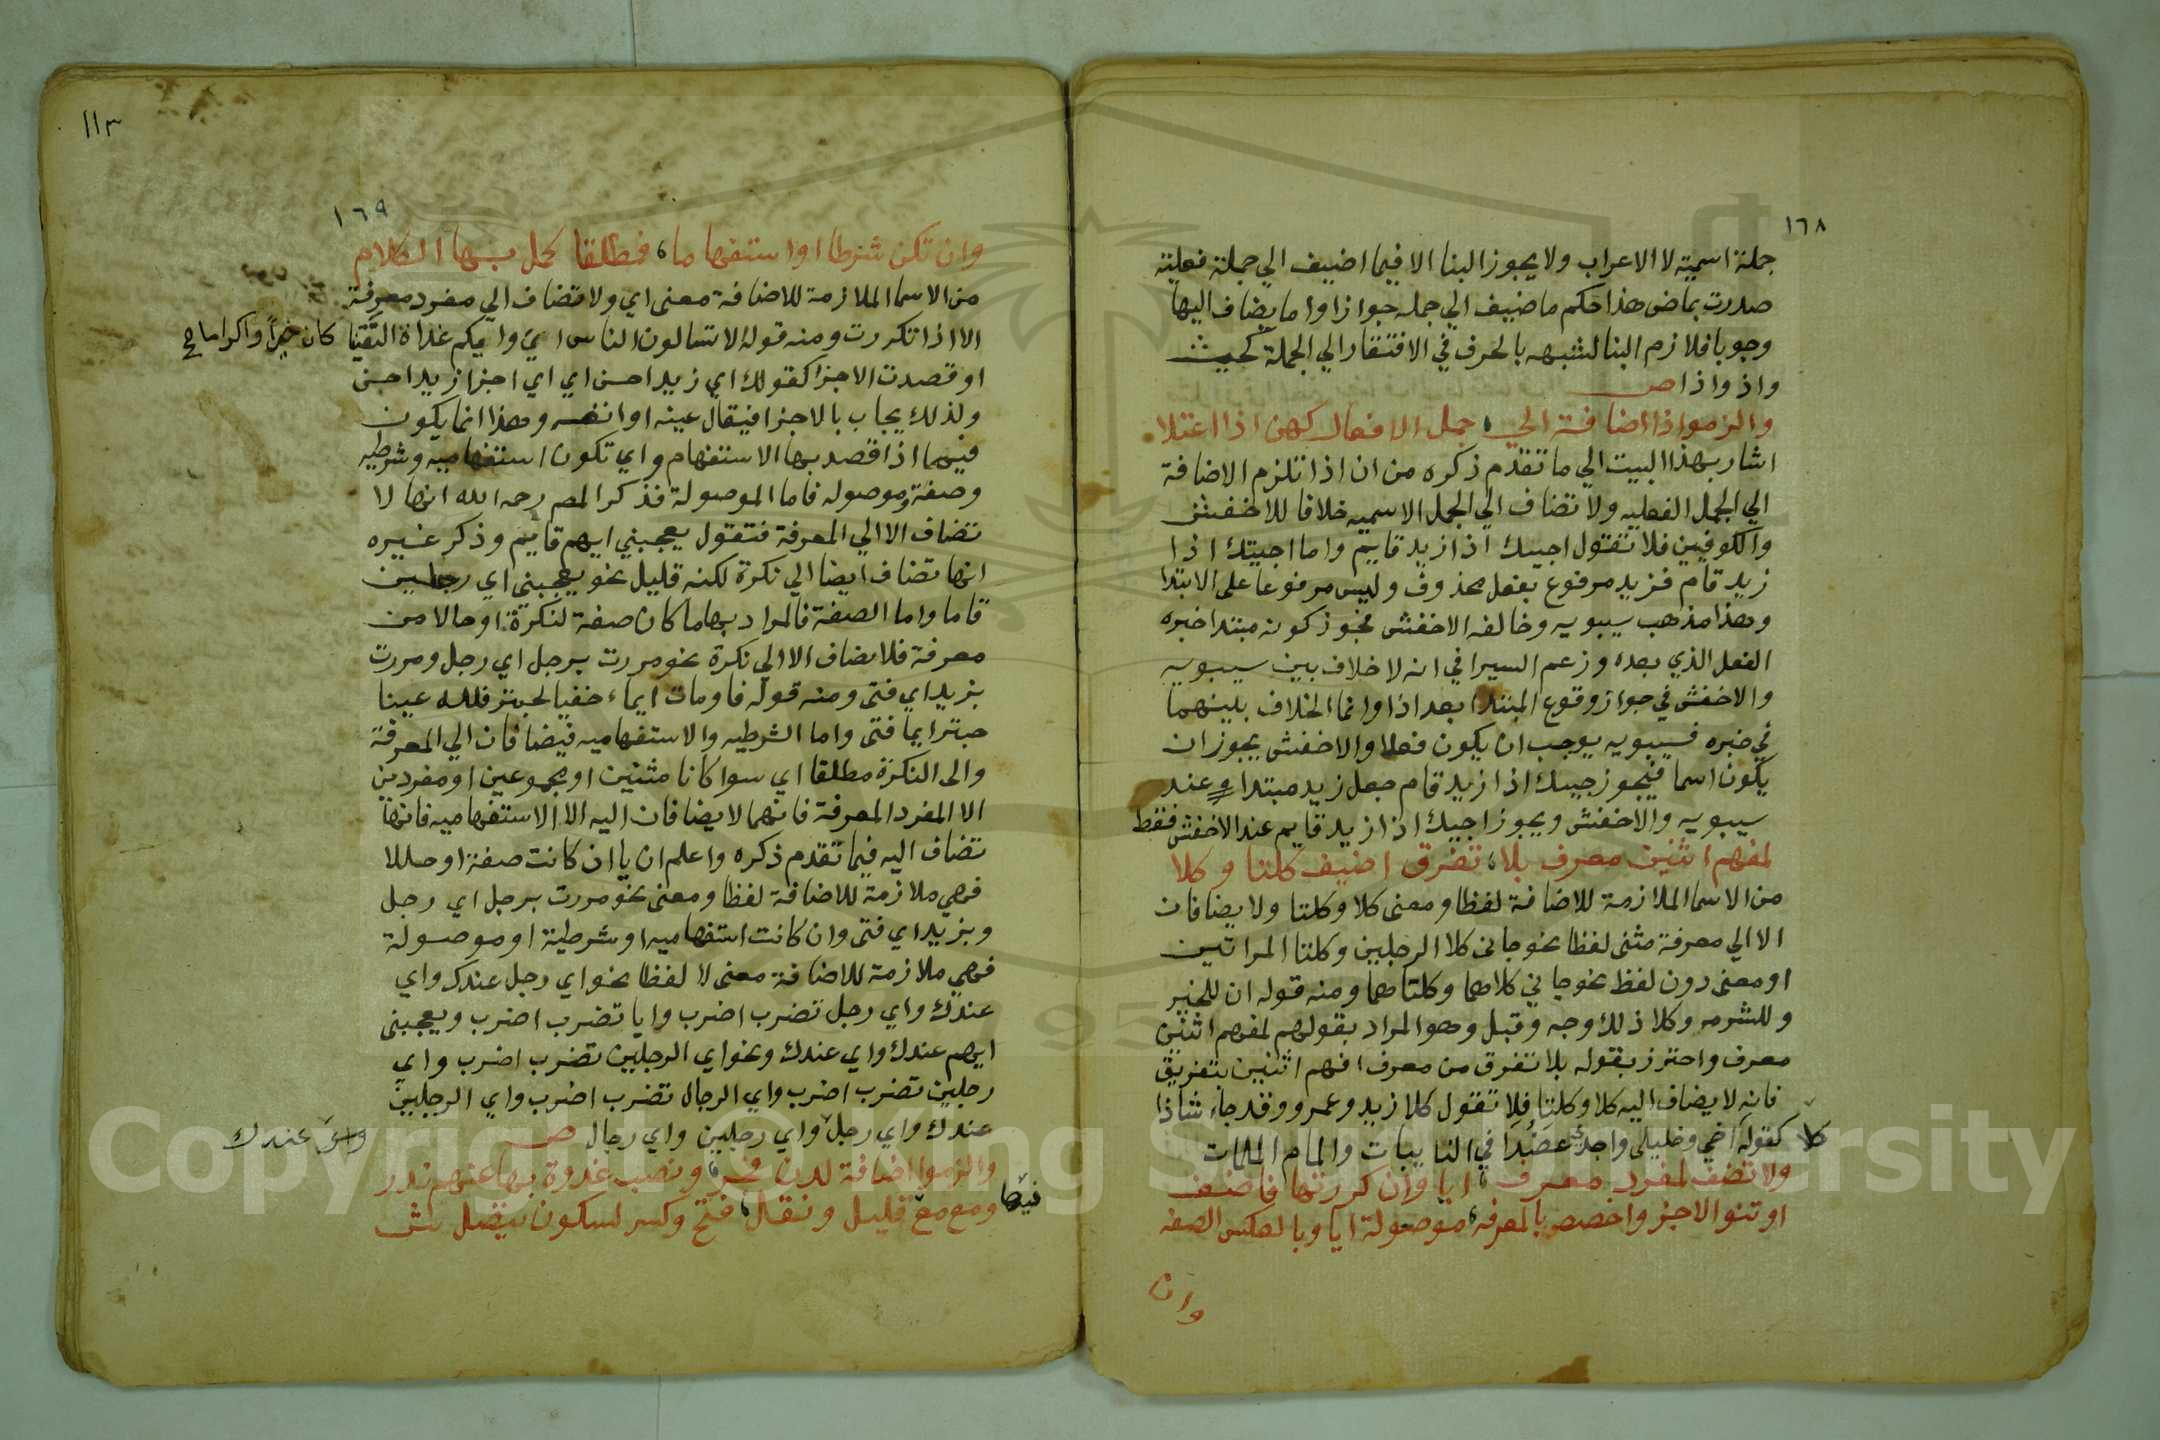 ١٦٨
جملة اسمية لا الاعراب ولا يجوز البنا الا فيما اضيف الي جملة فعلية
صدرت بماض هذا حكم ما ضيف الي جملة جوازا واما يضاف اليها
وجوبا فلازم البنا لشبهه بالحرف في الافتقار الي الجملة كحيث
واذ واذا ص
والزموا اذا اضافة الي، جمل الافعال كهن اذا اعتلا
اشار بهذا البيت الي ما تقدم ذكره من ان اذا تلزم الاضافة
الي الجمل الفعليه ولا تضاف الي الجمل الاسميه خلافا للاخفش
والكوفيين فلا تقول اجيك اذا زيد قايم واما اجيتك اذا
زيد قام فزيد مرفوع بفعل محذوف وليس مرفوعا على الابتدا
وهذا مذهب سيبويه وخالفه الاخفش فجوز كونه مبتدا خبره
الفعل الذي بعده وزعم السيرافي انه لا خلاف بين سيبويه
والاخفش في جواز وقوع المبتدا بعد اذا وانما الخلاف بينهما
في خبره فسيبويه يوجب ان يكون فعلا والاخفش يجوز ان
يكون اسما فيجوز جيك اذا زيد قام جعل زيد مبتدا عند
سيبويه والاخفش ويجوز اجيك اذا زيد قايم عند الاخفش فقط
لمفهم اثنين معرف بلا، تفرق اضيف كلتا وكلا
من الاسما الملازمة للاضافة لفظا ومعنى كلا وكلتا ولا يضافان
الا الي معرفة مثنى لفظا نحو جانى كلا الرجلين وكلتا المراتين
او معنى دون لفظ نحو جاني كلاهما وكلتاهما ومنه قوله ان للخير
وللشر مد وكلا ذلك وجه وقبل وهو المراد بقولهم لمفهم اثنين
معرف واحترز بقوله بلا تفرق من معرف افهم اثنين بتفريق
فانه لا يضاف اليه كلا وكلتا فلا تقول كلا زيد وعمرو وقد جاء شاذا
كلا
كقوله اخي وخليلي واجدي عضدا في النايبات والمام الملمات
ولا تضف لمفرد معرف، ايا وان كررتها فاضف
او تنو الاجز واخصص بالمعرفه، موصولة ايا وبالعكس الصفه
وان
١١٣
١٦٩
وان تكن شرطا او استفهاما، فمطلقا كمل بها الكلام
من الاسما الملازمة للاضافة معنى اي ولا تضاف الي مفرد معرفة
الا اذا تكررت ومنه قوله الا تسالون الناس ايّ وايكم غداة التقينا كان خيرا واكراما
او قصدت الاجزا كقولك اي زيد احسن اي اي اجزا زيد احسن
ولذلك يجاب بالاجزا فيقال عينه او انفه وهذا انما يكون
فيهما اذا قصد بها الاستفهام واي تكون استفهاميه وشرطيه
وصفة وموصوله فاما الموصولة فذكر المص رحمه الله انها لا
تضاف الا الي المعرفة فتقول يعجبني ايهم قايم وذكر غيره
انها تضاف ايضا الي نكرة لكنه قليل نحو يعجبنى اي رجلين
قاما واما الصفة فالمراد بها ما كان صفة لنكرة او حالا من
معرفة فلا يضاف الا الي نكرة نحو مررت برجل اي رجل ومررت
بزيد اي فتى ومنه قوله فاومات ايماء خفيا لحبتر فلله عينا
حبتر ايما فتى واما الشرطيه والاستفهاميه فيضافان الي المعرفة
والى النكرة مطلقا اي سوا كانا مثنيين او مجموعين او مفردين
الا المفرد المعرفة فانهما لا يضافان اليه الا الاستفهاميه فانها
تضاف اليه فيما تقدم ذكره واعلم ان يا ان كانت صفة او حالا
فهي ملازمة للاضافة لفظا ومعنى نحو مررت برجل اي رجل
وبزيد اي فتى وان كانت استفهاميه او شرطية او موصولة
فهي ملازمة للاضافة معنى لا لفظا نحو اي رجل عندك واي
عندك واي رجل تضرب اضرب وايا تضرب اضرب ويعجبنى
ايهم عندك واي عندك ونحو اي الرجلين تضرب اضرب واي
رجلين تضرب اضرب واي الرجال تضرب اضرب واي الرجلين
عندك واي رجل واي رجلين واي رجال ص
واي عندك
والزموا اضافة لدن فجر، ونصب غدوة بها عنهم ندر
ومع مع فيها قليل ونقل، فتح وكسر لسكون يتصل ش
Copyright © King Saud University